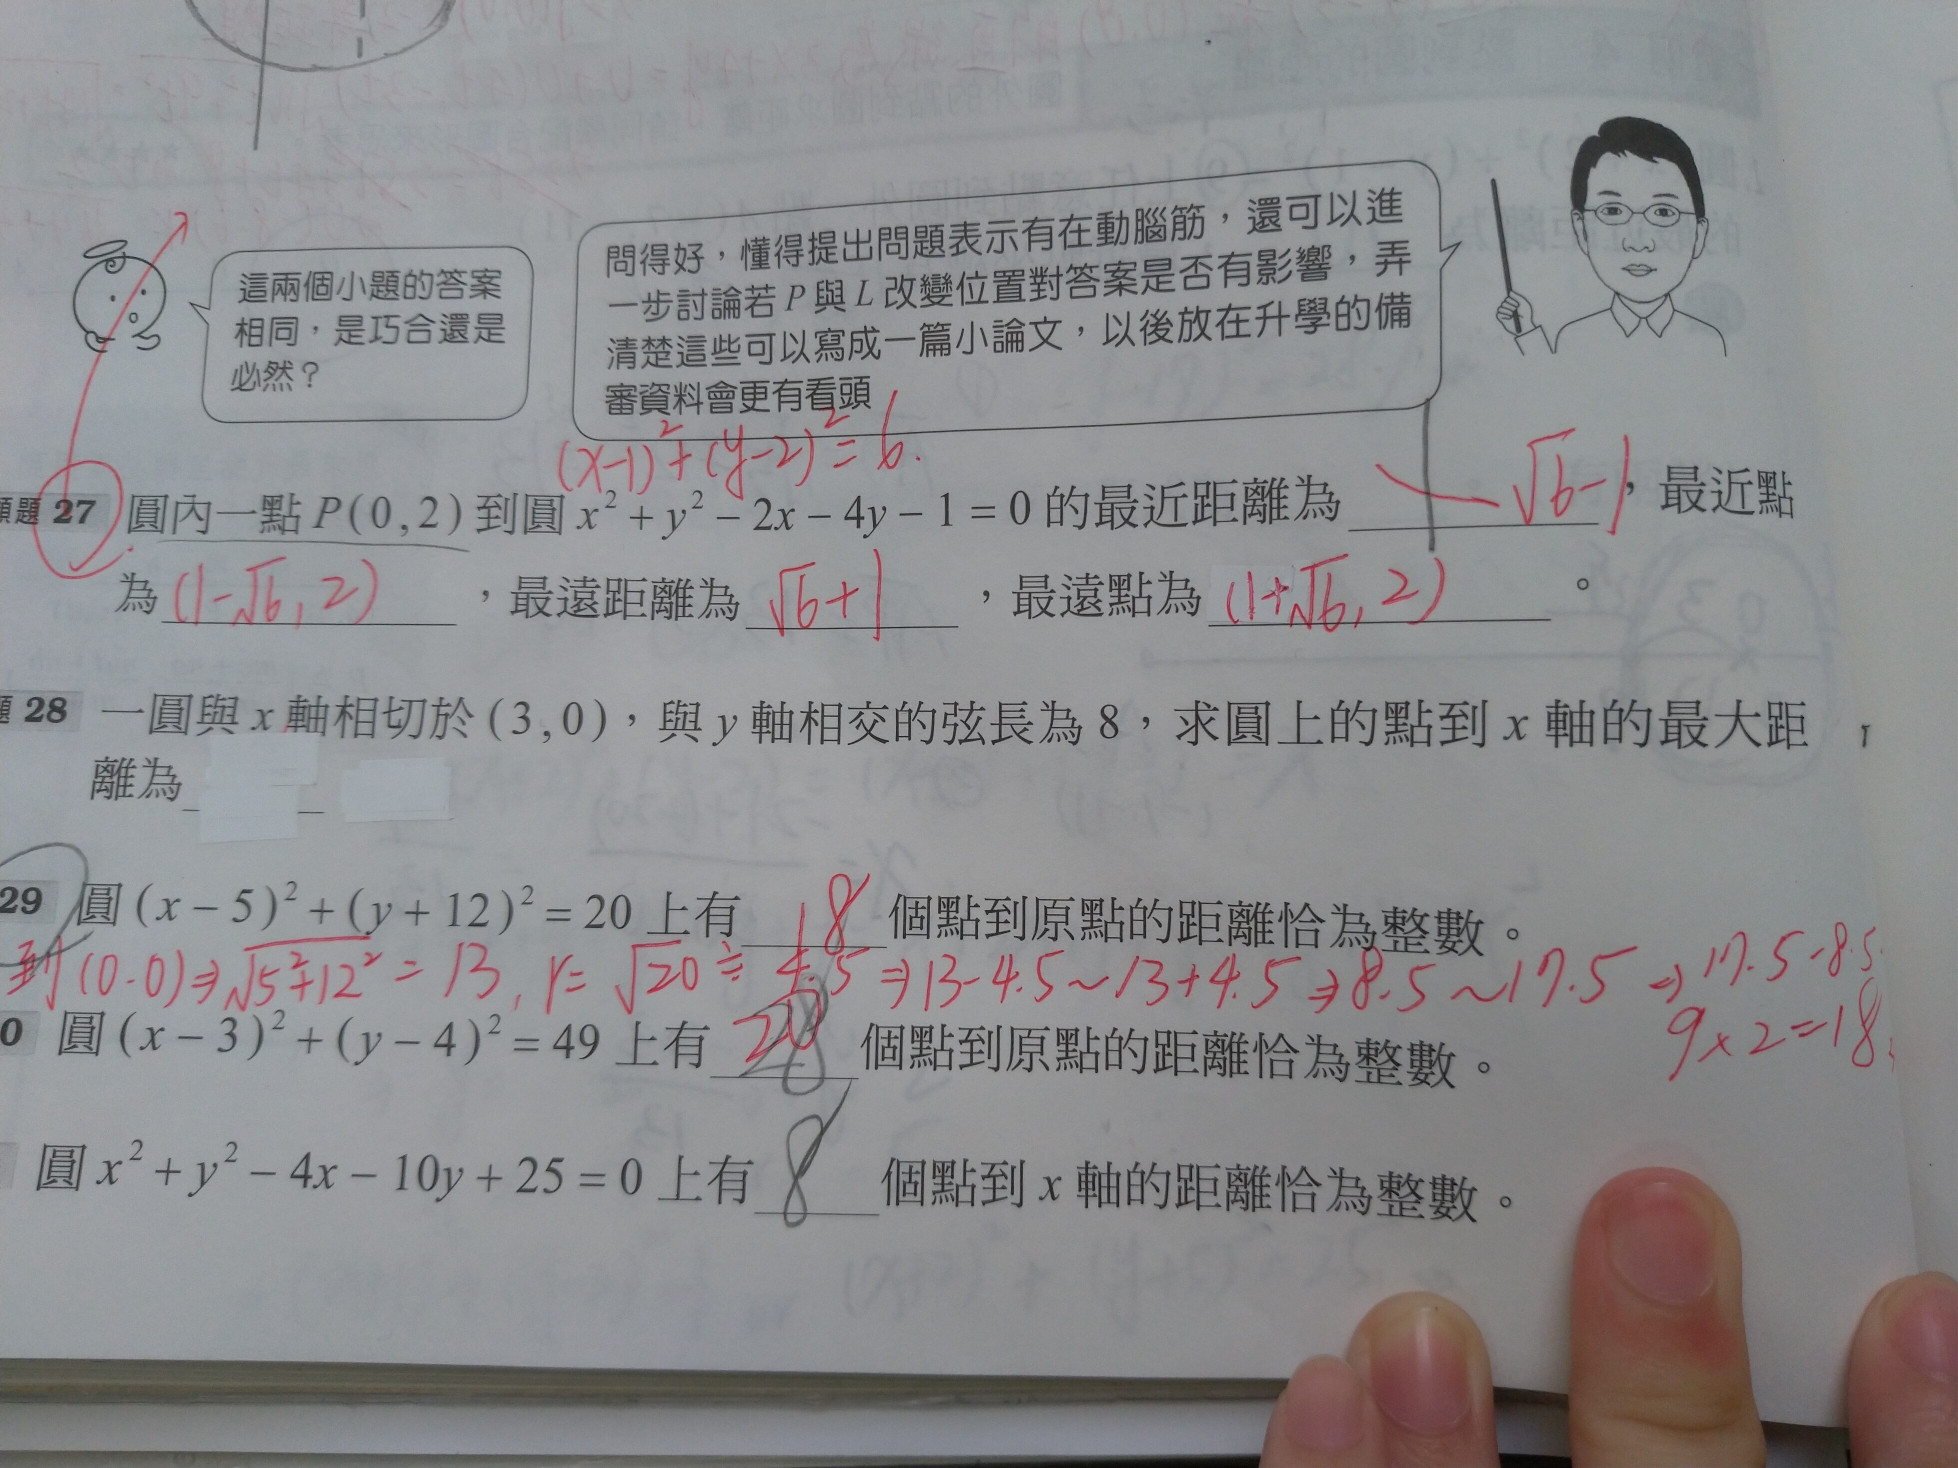 這兩個小題的答案
相同，是巧合還是
必然？
問得好，懂得提出問題表示有在動腦筋，還可以進
一步討論若 P 與 L 改變位置對答案是否有影響，弄
清楚這些可以寫成一篇小論文，以後放在升學的備
審資料會更有看頭
(x-1)²+(y-2)²=6.
題 27 圓內一點 P(0,2) 到圓 x²+y²-2x-4y-1=0 的最近距離為 √6-1，最近點
為 (1-√6, 2)，最遠距離為 √6+1，最遠點為 (1+√6, 2)。
題 28 一圓與 x 軸相切於 (3,0)，與 y 軸相交的弦長為 8，求圓上的點到 x 軸的最大距
離為
29 圓 (x-5)²+(y+12)²=20 上有 18 個點到原點的距離恰為整數。
到(0.0)⇒√5²+12² = 13, r=√20≒4.5⇒13-4.5~13+4.5⇒8.5~17.5⇒17.5-8.5
9×2=18
0 圓 (x-3)²+(y-4)²=49 上有 20 個點到原點的距離恰為整數。
圓 x²+y²-4x-10y+25=0 上有 8 個點到 x 軸的距離恰為整數。